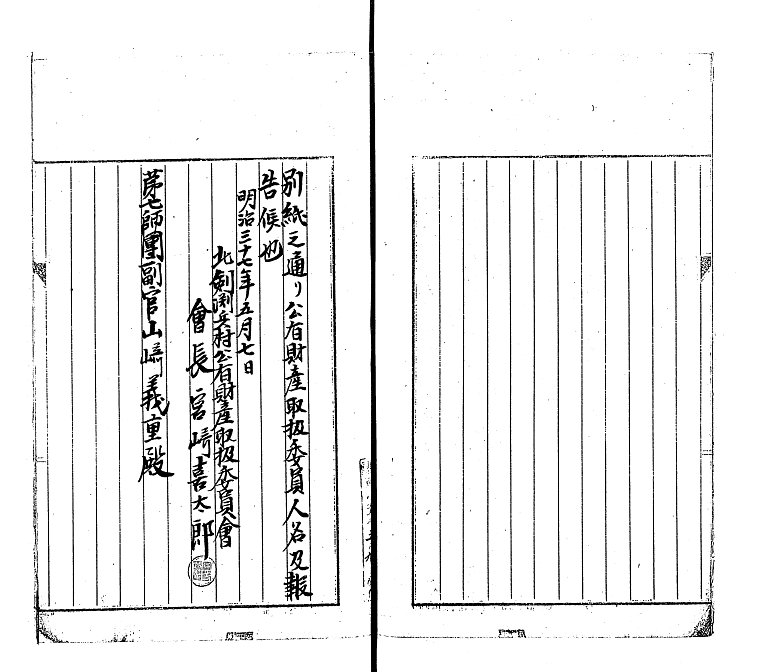 別紙之通リ公有財産取扱委員人名及報
告候也
明治三十七年五月七日
北剣渕兵村公有財産取扱委員會
會長宮崎喜太郎
第七師團副官山崎義重殿